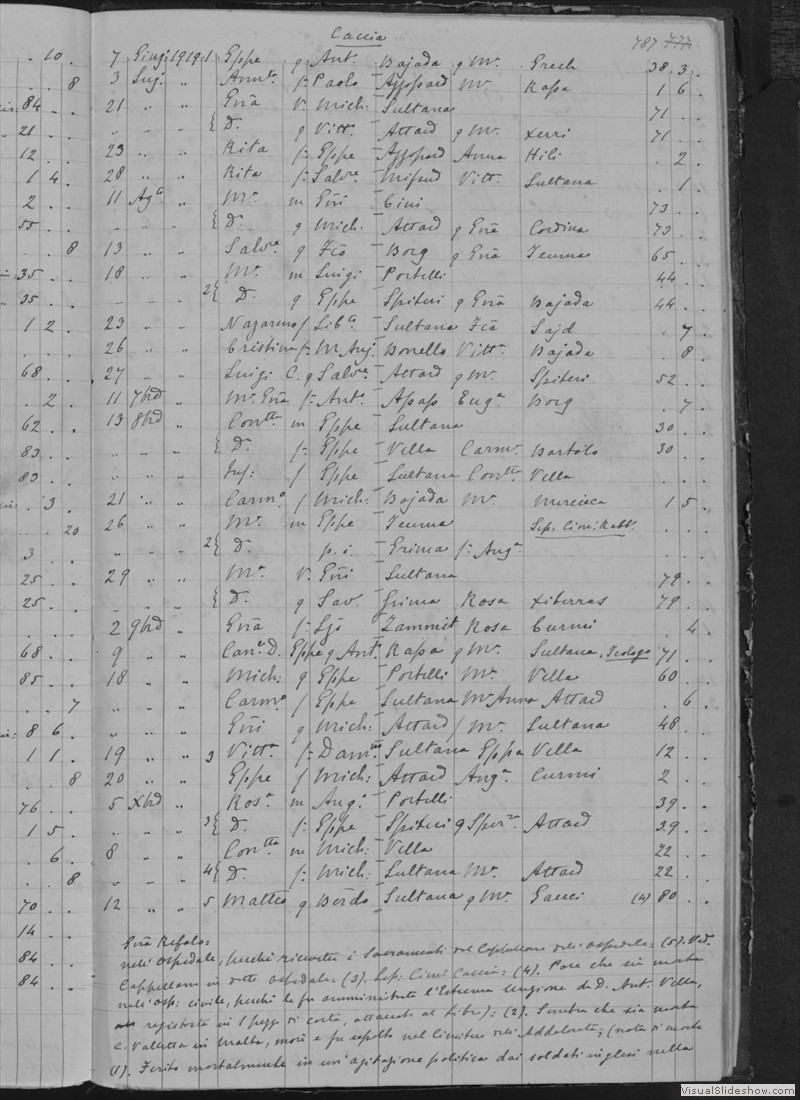 Caccia
787 777
10 . 7 Giug. 1919 1 Eppe q Ant. Bajada q Mª Grech 38 . 3 .
8 3 Lug. " Annta f. Paolo Azzopard Mª Rapa 1 6 .
84 . . 21 " " Grã V. Mich: Sultana 71 . .
21 . . " " " { D. q Vittª Attard q Mª Xerri 71 . .
12 . . 23 " " Rita f. Eppe Azzopard Anna Hili . 2 .
1 4 . 28 " " Rita f. Salvre Mifsud Vittª Sultana . 1 .
2 . . 11 Agº " Mª m Grñi Cini 73 . .
55 . . " " " { D. q Mich: Attard q Grã Cordina 73 . .
. . 8 13 " " Salvre q Fcõ Borg q Grã Teuma 65 . .
35 . . 18 " " Mª m Luigi Portelli 44 . .
35 . . " " " 2 { D. q Eppe Spiteri q Grã Bajada 44 . .
1 2 . 23 " " Nazareno f Libto Sultana Fcã Sajd . 7 .
. . . 26 " " Cristina f. M. Ang. Bonello Vittª Bajada . 8 .
68 . . 27 " " Luigi C. q Salvre Attard q Mª Spiteri 52 . .
. 2 . 11 7bre " Mª Grã f. Antº Apap Eugª Borg . 7 .
62 . . 13 8bre " Contta m Eppe Sultana 30 . .
83 . . " " " { D. f. Eppe Vella Carmª Bartolo 30 . .
83 . . " " " Inf: f Eppe Sultana Contta Vella . . .
. 3 . 21 " " Carmº f Mich: Bajada Mª Mercieca 1 5 .
. . 20 26 " " Mª m Eppe Teuma Sep. Cimi. Rabt. . . .
3 . . " " " 2 { D. p. i. Grima f. Angª . . .
25 . . 29 " " Mª V. Grñi Sultana 79 . .
25 . . " " { D. q Sav. Grima Rosa Xiberras 79 . .
. . . 2 9bre " Grã f. Lgõ Zammit Rosa Curmi . 4 .
68 . . 9 " " Cane D. Eppe q Ant. Rapa q Mª Sultana, Teologo 71 . .
85 . . 18 " " Mich: q Eppe Portelli Mª Vella 60 . .
. . 7 " " " Carmª f Eppe Sultana Mª Anna Attard . 6 .
8 6 . " " " Grñi q Mich: Attard f Mª Sultana 48 . .
1 1 . 19 " " 3 Vittª f. Damno Sultana Eppa Vella 12 . .
. . 8 20 " " Eppe f Mich: Attard Angª Curmi 2 . .
76 . . 5 Xbre " Rosª m Ang. Portelli 39 . .
1 5 . " " " 3 { D. f. Eppe Spiteri q Sperza Attard 39 . .
. 6 . 8 " " Contta m Mich: Villa 22 . .
. . 8 " " " 4 { D. f. Mich: Sultana Mª Attard 22 . .
70 . . 12 " " 5 Matteo q Berdo Sultana q Mª Gauci (4) 80 . .
14 . .
84 . . Grã Refalo=
84 . . nell' ospedale, perchè ricevette i Sacramenti del Cappellano dell' ospedale= (5). Ved.
Cappellano in detto ospedale= (3). Sep: Cimi Caccia= (4). Pare che sia morta
nell' osp: civile, perchè le fu amministrata l'Estrema Unzione da D. Ant. Vella,
registrata in 1 pezzo di carta, attacch. al libro): (2). Sembra che sia morta
C. Valletta in Malta, morì e fu sepolto nel Cimitero dell' Addolorata; (nota di morte
(1). Ferito mortalmente in un'agitazione politica dai soldati inglesi nella
VisualSlideshow.com